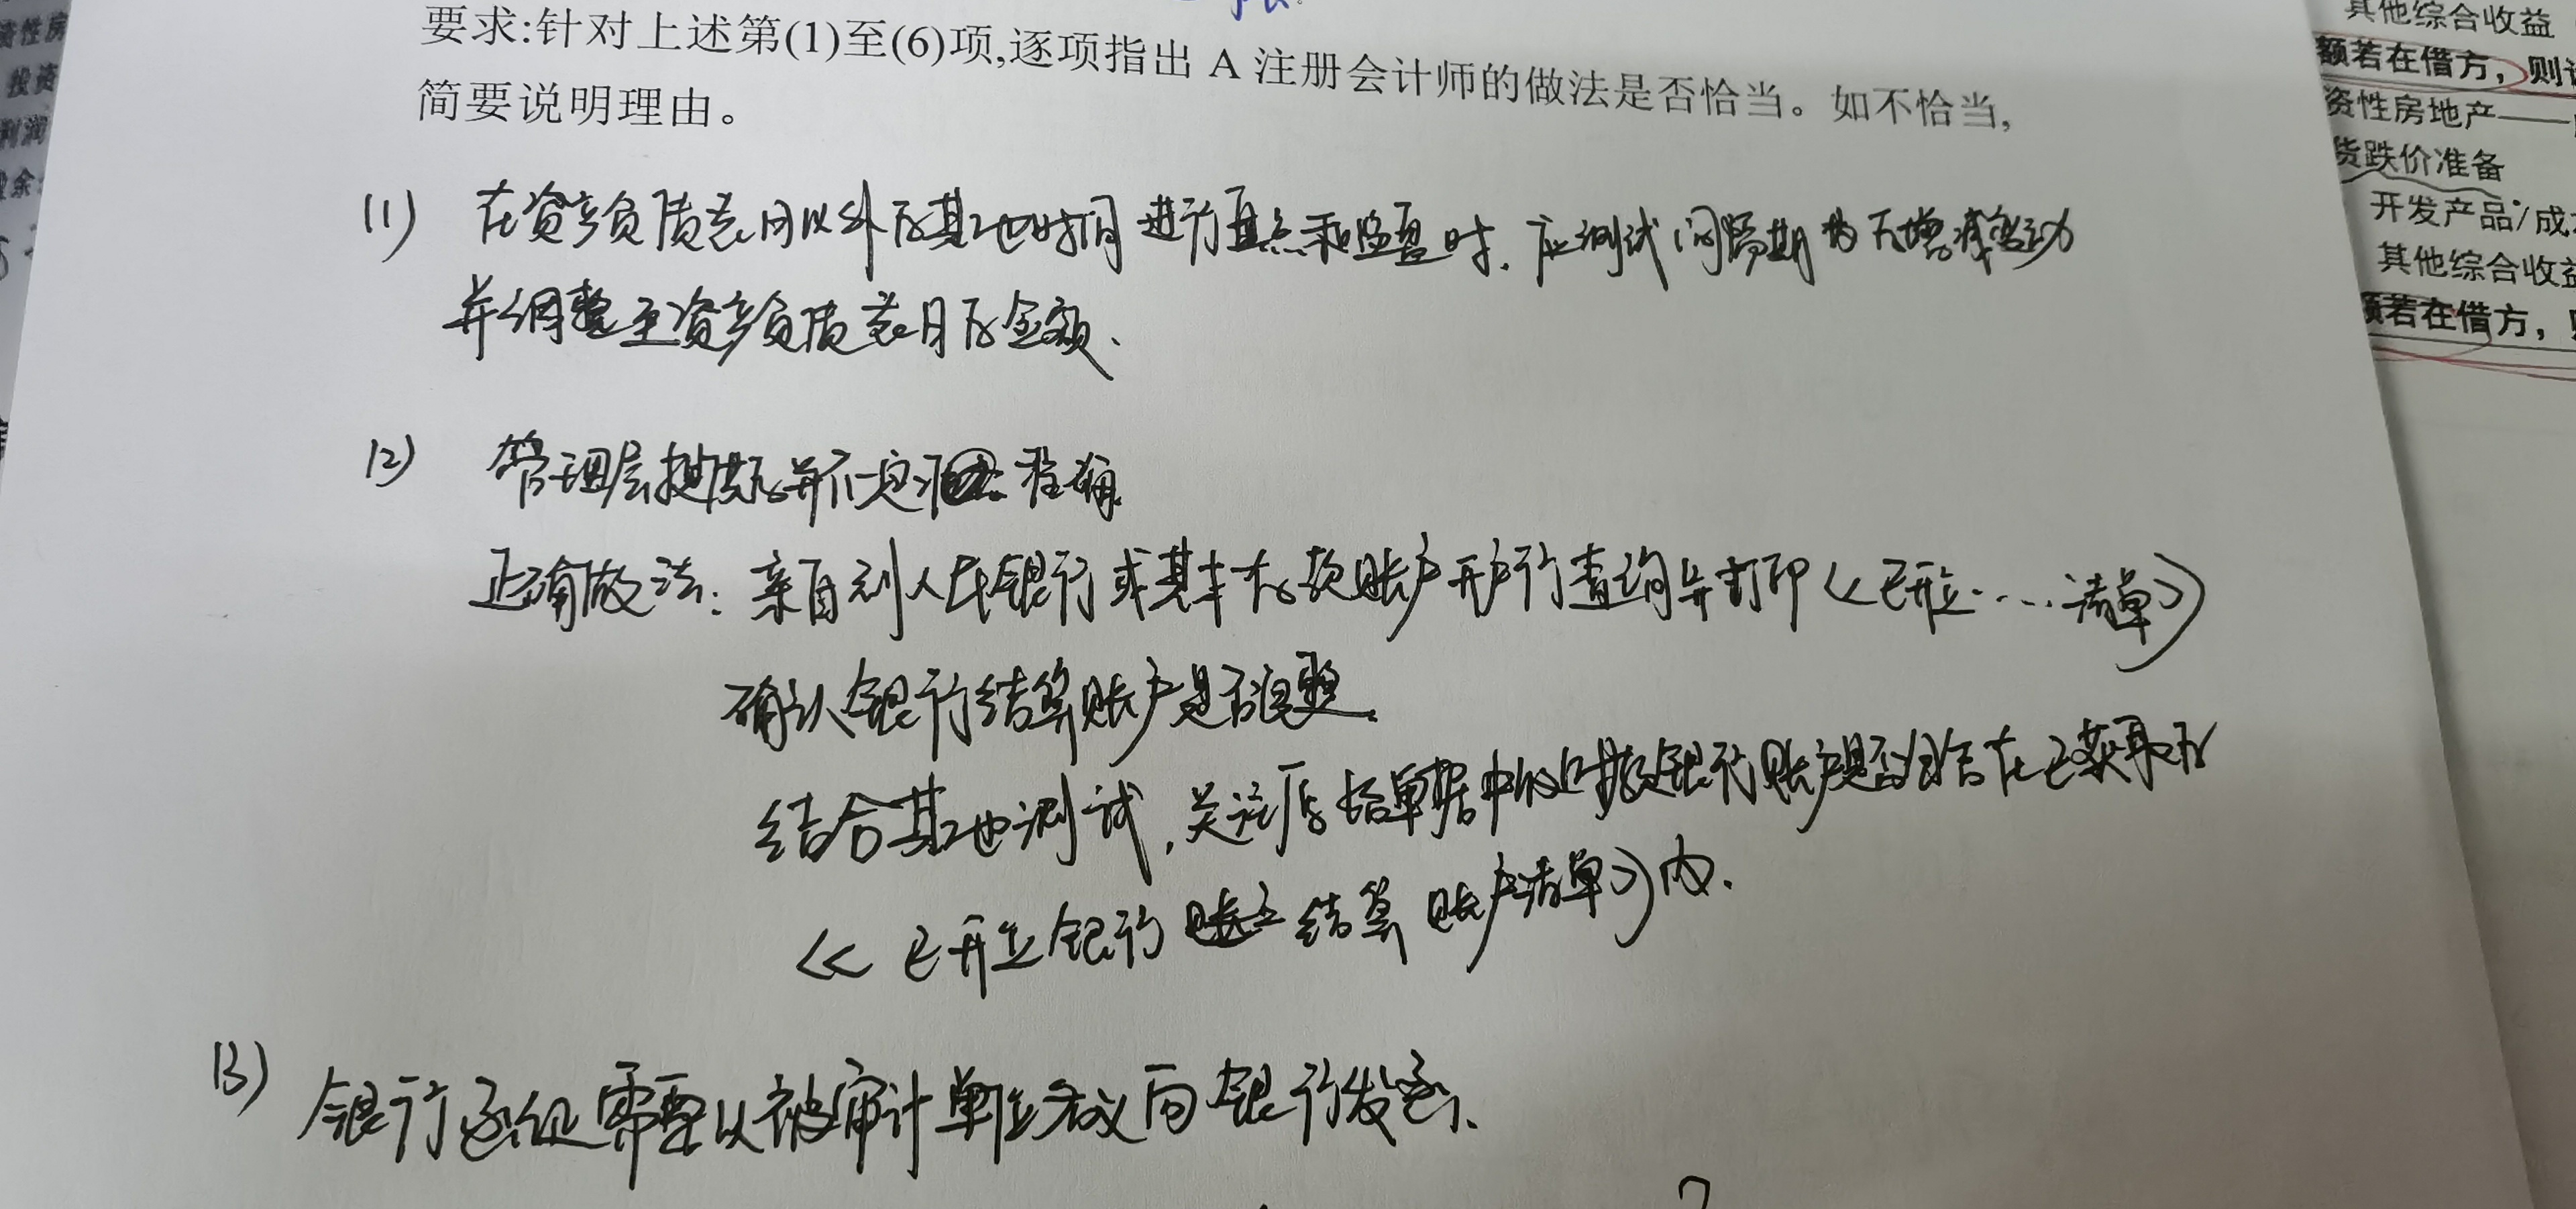 要求:针对上述第(1)至(6)项,逐项指出 A 注册会计师的做法是否恰当。如不恰当,
简要说明理由。
(1) 在资产负债表日以外的其他时间进行盘点和监盘时,应测试间隔期内增减变动
并调整至资产负债表日的金额.
(2) 管理层提供的并不一定准确.
正确做法:亲自到人民银行或基本存款账户开户行查询并打印《已开立....清单》
确认银行结算账户是否完整.
结合其他测试,关注原始单据中的收付款银行账户是否包含在已获取的
《已开立银行结算账户清单》内.
(3) 银行函证需要以被审计单位名义向银行发函.
其他综合收益
额若在借方,则
资性房地产——
货跌价准备
开发产品/成
其他综合收益
额若在借方,
资性房
投资
利润